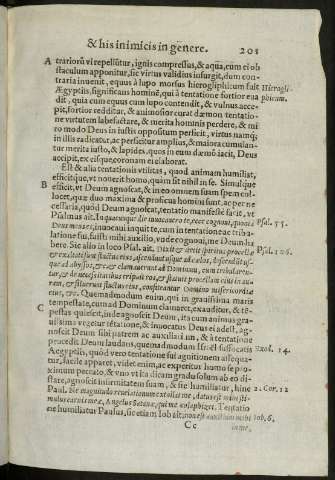 & his inimicis in genere. 201
A trariorũ vi repellũtur, ignis compressus, & aqua, cum ei ob
staculum apponitur, sic virtus validius insurgit, dum con-
traria inuenit, equus à lupo morsus hieroglyphicum fuit Hierogli-
Ægyptiis, significans hominē, qui à tentatione fortior eua phicum.
dit, quia cum equus cum lupo contendit, & vulnus acce-
pit, fortior redditur, & animosior curat dæmon tentatio-
ne virtutem labefactare, & merita hominis perdere, & mi
ro modo Deus in iustis oppositum perficit, virtus namq;
in illis radicatur, ac perficitur amplius, & maiora cumulan-
tur merita iusto, & lapides, quos in eum dæmõ iacit, Deus
accipit, ex eisque, coronam ei elaborat.
Est & alia tentationis vtilitas, quod animam humiliat,
efficitque, vt nouerit homo, quàm sit nihil in se. Simulque
B efficit, vt Deum agnoscat, & in eo omnem suam spem col-
locet, quæ duo maxima & proficua homini sunt, ac per ne
cessaria, quod Deum agnoscat, tentatio manifestè facit, vt
Psalmus ait. In quacunque die inuocauero te, ecce cognoui, quoniā Psal. 55.
Deus meus es, inuocaui inquit te, cum in tentatione ac tribu-
latione fui, fuisti mihi auxilio, vnde cognoui, me Deum ha
bere. Sic alio in loco Psal. ait. Dixit & stetit spiritus procellæ Psal. 106.
& exaltati sunt fluctus eius, ascendunt vsque ad cælos, & descendunt us-
que ad abyssos, &c. & clamauerunt ad Dominum, cum tribularen-
tur, & de necessitatibus eripuit eos, & statuit procellam eius in au
ram, & siluerunt fluctus eius, confiteantur Domino misericordiæ
eius, &c. Quemadmodum enim, qui in grauissima maris
tempestate, cum ad Dominum clamaret, exauditur, & tē-
C pestas quiescit, inde agnoscit Deum, ita cum animus gra-
uissima vrgetur tētatione, & inuocatus Deus ei adest, ag-
noscit Deum sibi patrem ac auxiliarium, & à tentatione
procedit Deum laudans, quemadmodum Israel suffocatis Exol. 14.
Aegyptiis, quòd verò tentatione sui agnitionem assequa-
tur, facilè apparet, videt enim, ac experitur homo se pro-
ximum peccato, & vno vt ita dicam gradu solum ab eo di-
stare, agnoscit infirmitatem suam, & sic humiliatur, hinc 2. Cor. 12
Paul. Sic magnitudo reuelationum extollat me, datus est mihi sti-
mulus carnis meæ, Angelus Satanæ, qui me colaphizet. Tentatio
ne humiliatur Paulus, sic etiam Iob ait, non est auxilium mihi Iob. 6.
Cc in me,